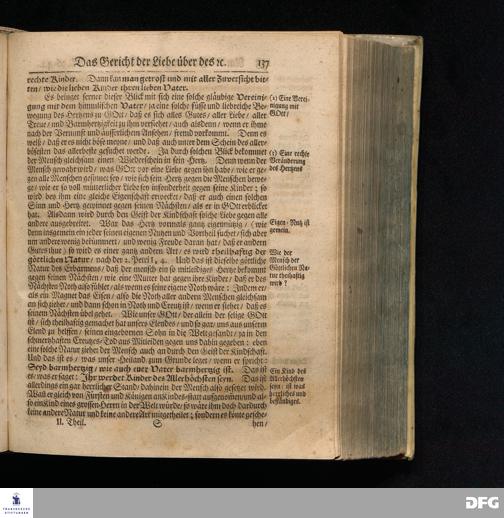 Das Gericht der Liebe über des ꝛc. 137
rechte Kinder. Dann kan man getrost und mit aller Zuversicht bit-
ten / wie die lieben Kinder ihren lieben Vater.
Es bringet ferner dieser Blick mit sich eine solche gläubige Vereini-
gung mit dem himmlischen Vater / ja eine solche süsse und liebreiche Be-
wegung des Hertzens zu GOtt / daß es sich alles Gutes / aller Liebe / aller
Treue / und Barmhertzigkeit zu ihm versiehet / auch alsdenn / wenn er ihme
nach der Vernunft und äusserlichen Ansehen / fremd vorkommt. Denn es
weiß / daß er es nicht böse meyne / und daß auch unter dem Schein des aller-
bösesten das allerbeste gesuchet werde. Ja durch solchen Blick bekommet
der Mensch gleichsam einen Wiederschein in sein Hertz. Denn wenn der
Mensch gewahr wird / was GOtt vor eine Liebe gegen ihn habe / wie er ge-
gen alle Menschen gesinnet sey / wie sich sein Hertz gegen die Menschen bewe-
ge / wie er so voll mütterlicher Liebe sey insonderheit gegen seine Kinder; so
wird bey ihm eine gleiche Eigenschaft erwecket / daß er auch einen solchen
Sinn und Hertz gewinnet gegen seinen Nächsten / als er in GOtt erblicket
hat. Alsdann wird durch den Geist der Kindschaft solche Liebe gegen alle
andere ausgebreitet. War das Hertz vormals gantz eigennützig / (wie
denn insgemein ein ieder seinen eigenen Nutzen und Vortheil suchet / sich aber
um andere wenig bekümmert / und wenig Freude daran hat / daß er andern
Gutes thue) so wird es einer gantz andern Art / es wird theilhaftig der
göttlichen Natur / nach der 2. Petri 1, 4. Und das ist dieselbe göttliche
Natur des Erbarmens / daß der mensch ein so mitleidiges Hertze bekomt
gegen seinen Nächsten / wie eine Mutter hat gegen ihre Kinder / daß er des
Nächsten Noth also fühlet / als wenn es seine eigene Noth wäre: Indem er /
als ein Magnet das Eisen / also die Noth aller andern Menschen gleichsam
an sich ziehet / und dann schon in Noth und Creutz ist / wenn er siehet / daß es
seinem Nächsten übel gehet. Wie unser GOtt / der allein der selige GOtt
ist / sich theilhaftig gemachet hat unsers Elendes / und so gar / uns aus unserm
Elend zu helffen / seinen eingebornen Sohn in die Welt gesandt / ja in den
schmertzhaften Creutzes-Tod aus Mitleiden gegen uns dahin gegeben: eben
eine solche Natur ziehet der Mensch auch an durch den Geist der Kindschaft.
Und das ist es / was unser Heiland zum Grunde leget / wenn er spricht:
Seyd barmhertzig / wie auch euer Vater barmhertzig ist. Das ist
es / was er saget: Ihr werdet Kinder des Allerhöchsten seyn. Das ist
allerdings ein gar herrlicher Stand / dahinein der Mensch also gesetzet wird.
Wañ er gleich von Fürsten und Königen an Kindes-statt aufgenommen und al-
so ein Kind eines grossen Herrn in der Welt würde / so wäre ihm doch dardurch
keine andere Natur und keine andere Art mitgetheilet; sondern es könte gesche-
II. Theil. S hen /
(2) Eine Verei-
nigung mit
GOtt /
(3) Eine rechte
Veränderung
des Hertzens
Eigen-Nutz ist
gemein.
Wie der
Mensch der
Göttlichen Na-
tur theilhaftig
wird?
Ein Kind des
Allerhöchsten
seyn / ist was
herrliches und
beständiges.
FRANCKESCHE
STIFTUNGEN
DFG